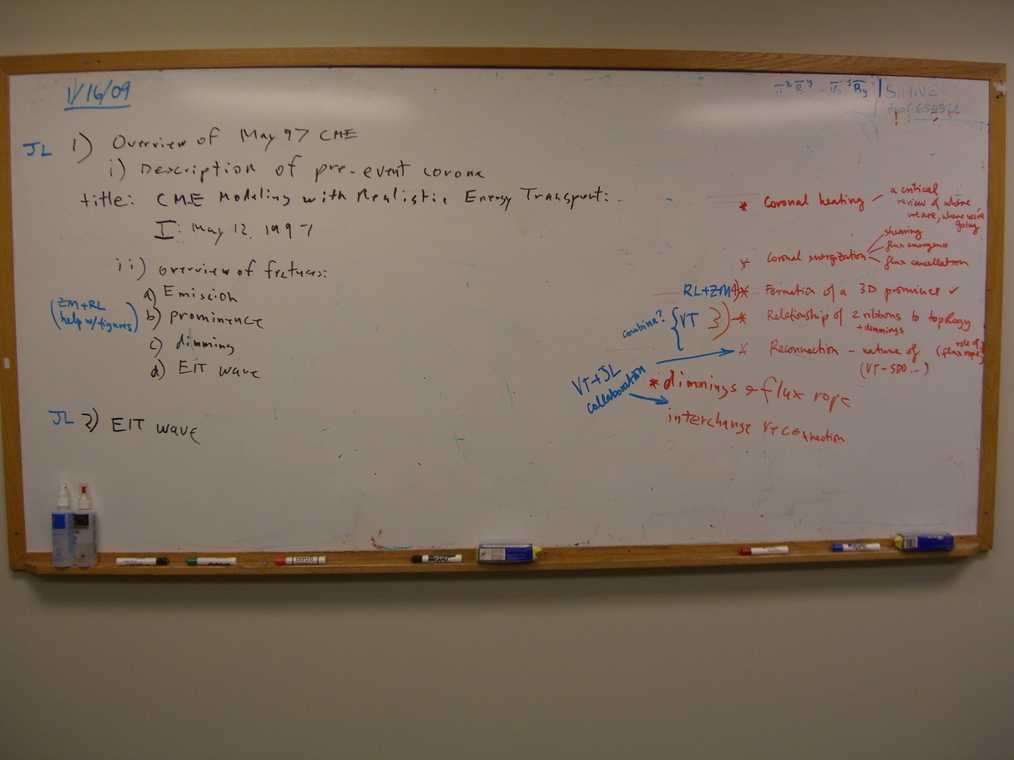 1/16/09
JL 1) Overview of May 97 CME
i) Description of pre-event corona
title: CME Modeling with Realistic Energy Transport:
I: May 12, 1997
ii) overview of features:
a) Emission
ZM+RL
(help w/figures)
b) prominence
c) dimming
d) EIT wave
JL 2) EIT wave
SHINE
* Coronal heating – a critical
review of where
we are, where we're
going
* Coronal energization
shearing
flux emergence
flux cancellation
RL+ZM 4) * Formation of a 3D prominence ✓
combine? { VT 3) * Relationship of 2 ribbons to topology
+ dimmings
* Reconnection – nature of (role of
flux rope)
(VT-SDO...)
VT+JL
collaboration
* dimmings & flux rope
interchange reconnection